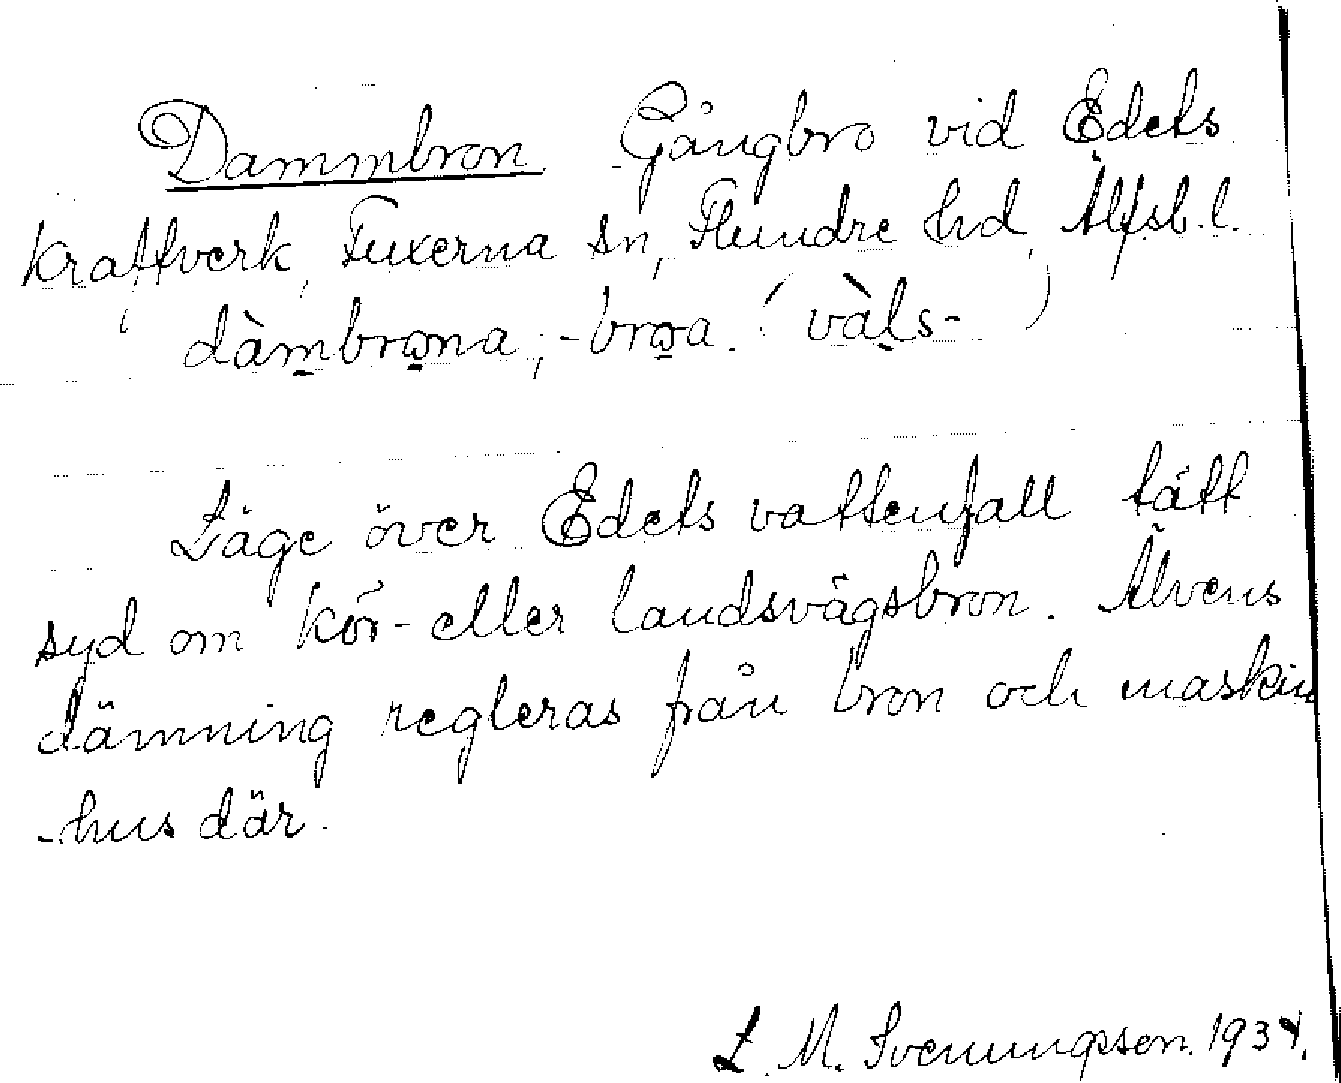 Dammbron Gångbro vid Edets
kraftverk, Fuxerna sn, Flundre hd, Älfsb. l.
dàmbrωna, -brωa. (vàls-)
Läge över Edets vattenfall tätt
syd om kör- eller landsvägsbron. Älvens
dämning regleras från bron och maskin
-hus där.
L. M. Svenungsson. 1934.